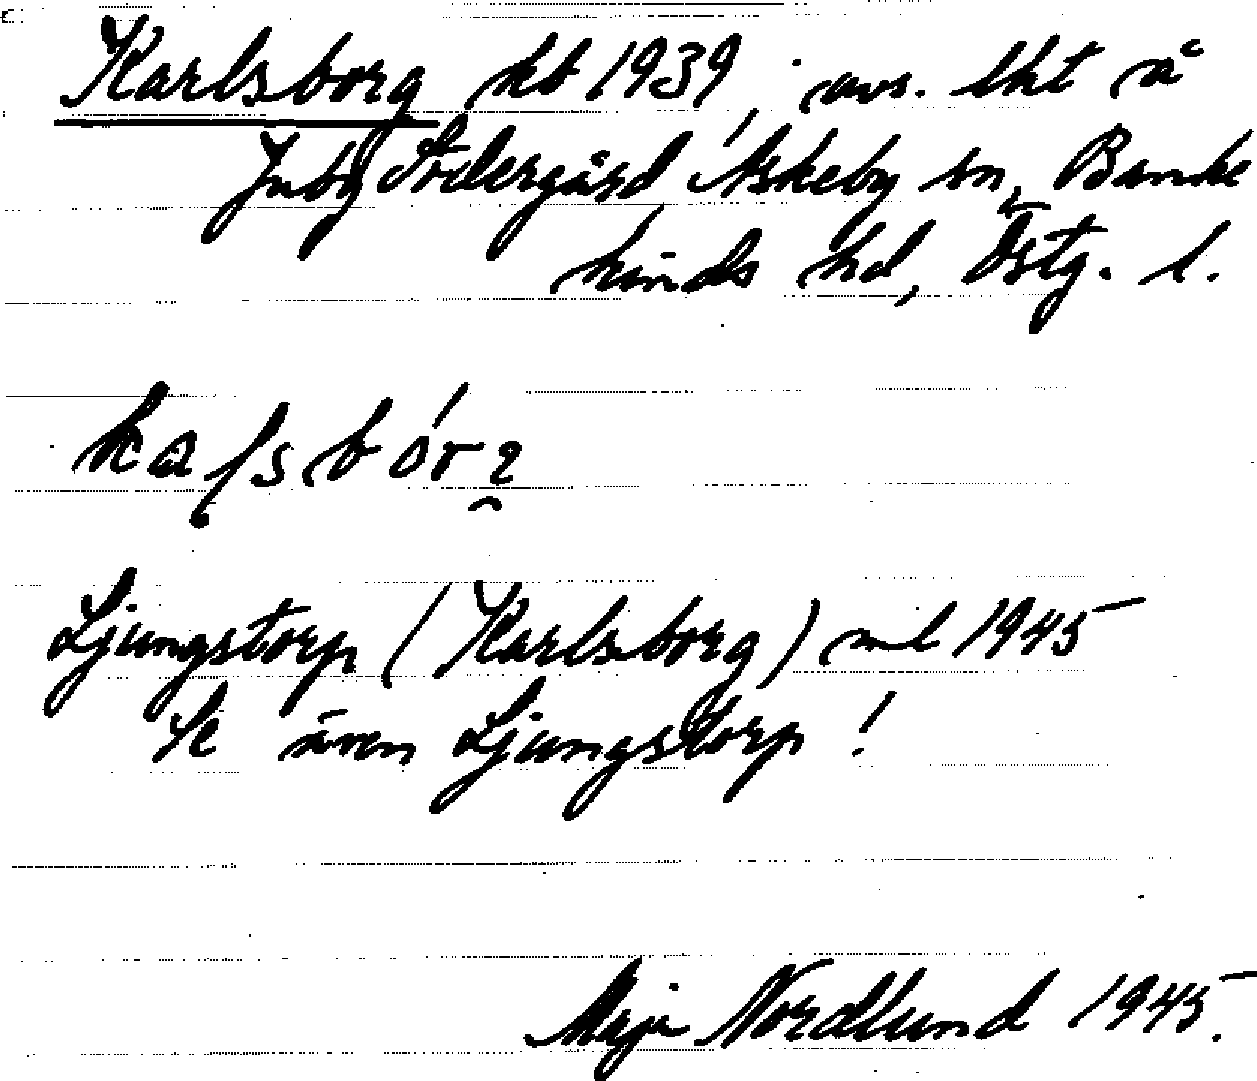 Karlsborg kb 1939, avs. lht å
Juby Södergård Askeby sn, Banke
kinds hd, Östg. l.
Ljungstorp (Karlsborg) ml 1945
Se även Ljungstorp!
Maja Nordlund 1945.